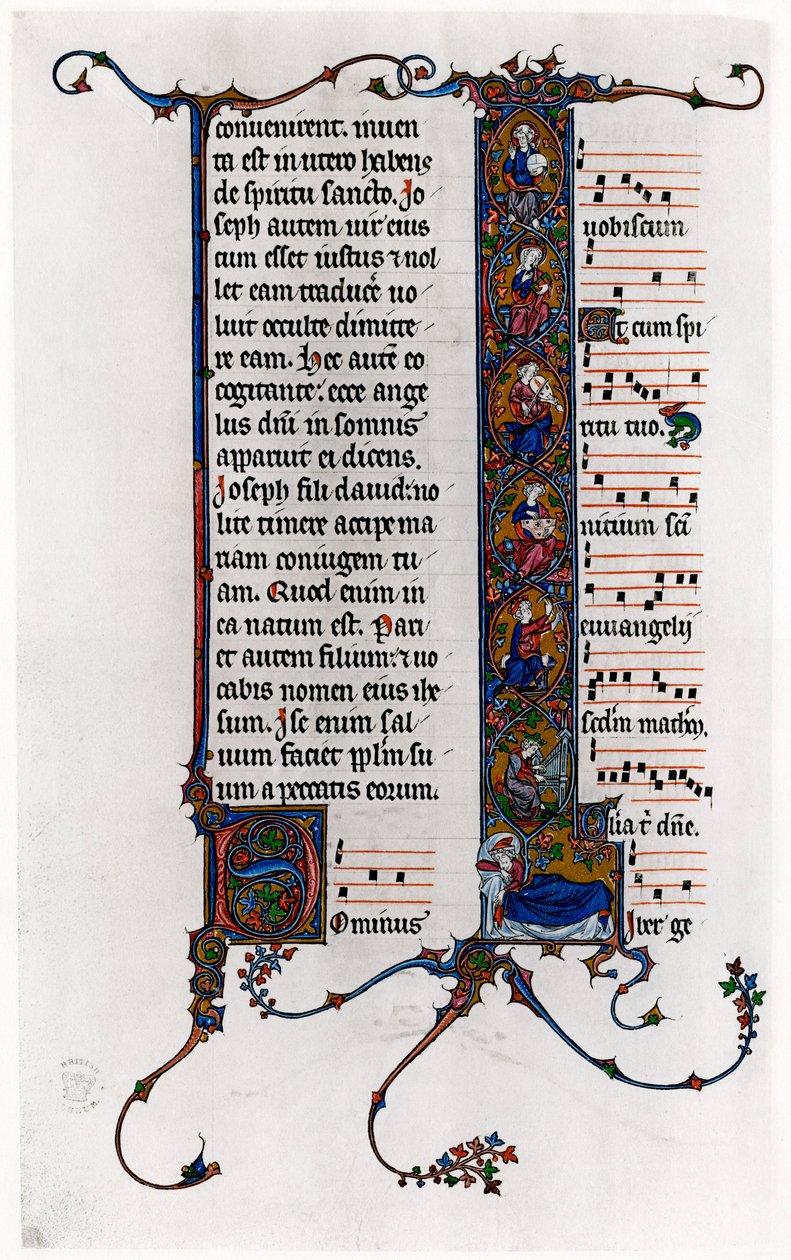 conuenirent. inuen
ta est in utero habens
de spiritu sancto. Jo
seph autem uir eius
cum esset iustus ⁊ nol
let eam traduce͛ uo
luit occulte dimitte
re eam. Hec autē eo
cogitante: ecce ange
lus dn̄i in somnis
apparuit ei dicens.
Joseph fili dauid: no
lite timere accipe ma
riam coniugem tu
am. Quod enim in
ea natum est. Pari
et autem filium: ⁊ uo
cabis nomen eius ihe
sum. Jse enim sal
uum faciet pplm̄ su
um a peccatis eorum.
Dominus
uobiscum
Et cum spi
ritu tuo.
nitium sci
euuangelij
scdm̄ mathm̄.
Glia t' dn̄e.
Liber ge